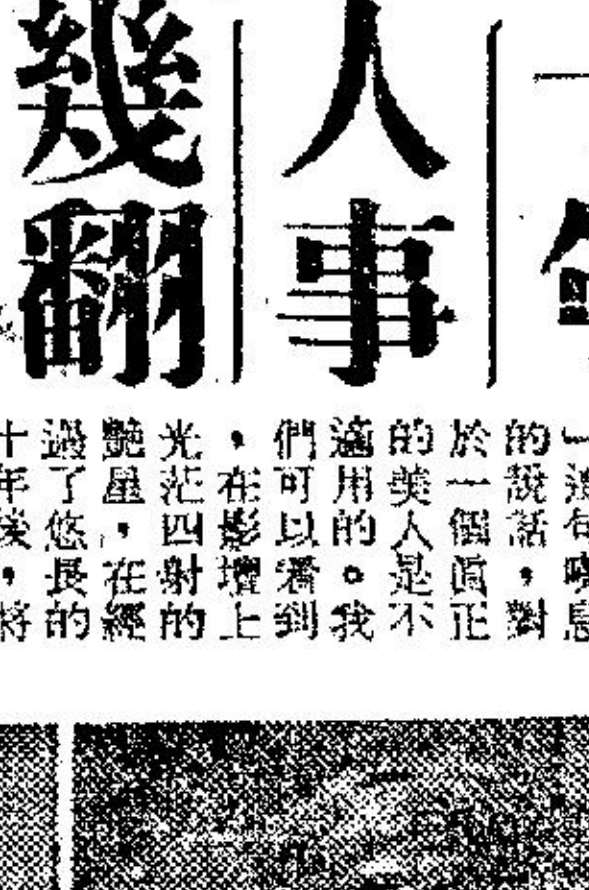 人事
幾翻
這句嘆息
的說話，對
於一個眞正
的美人是不
適用的。我
們可以看到
，在影壇上
光茫四射的
艷星，在經
過了悠長的
十年後，將